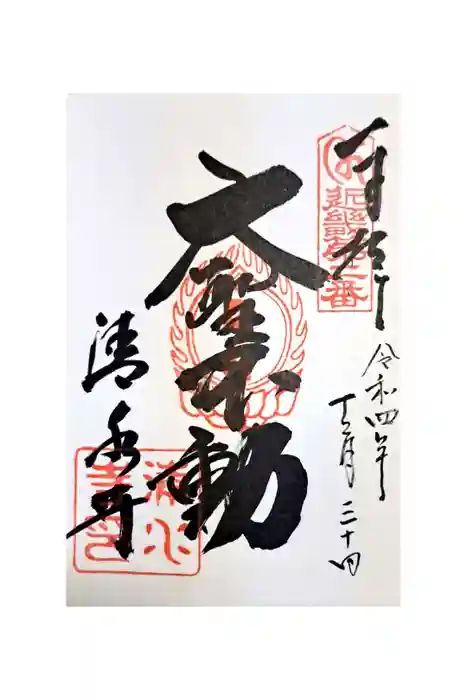 奉拝
近畿第二番
令和四年
十二月三十日
大聖不動
清水寺
清水
寺印